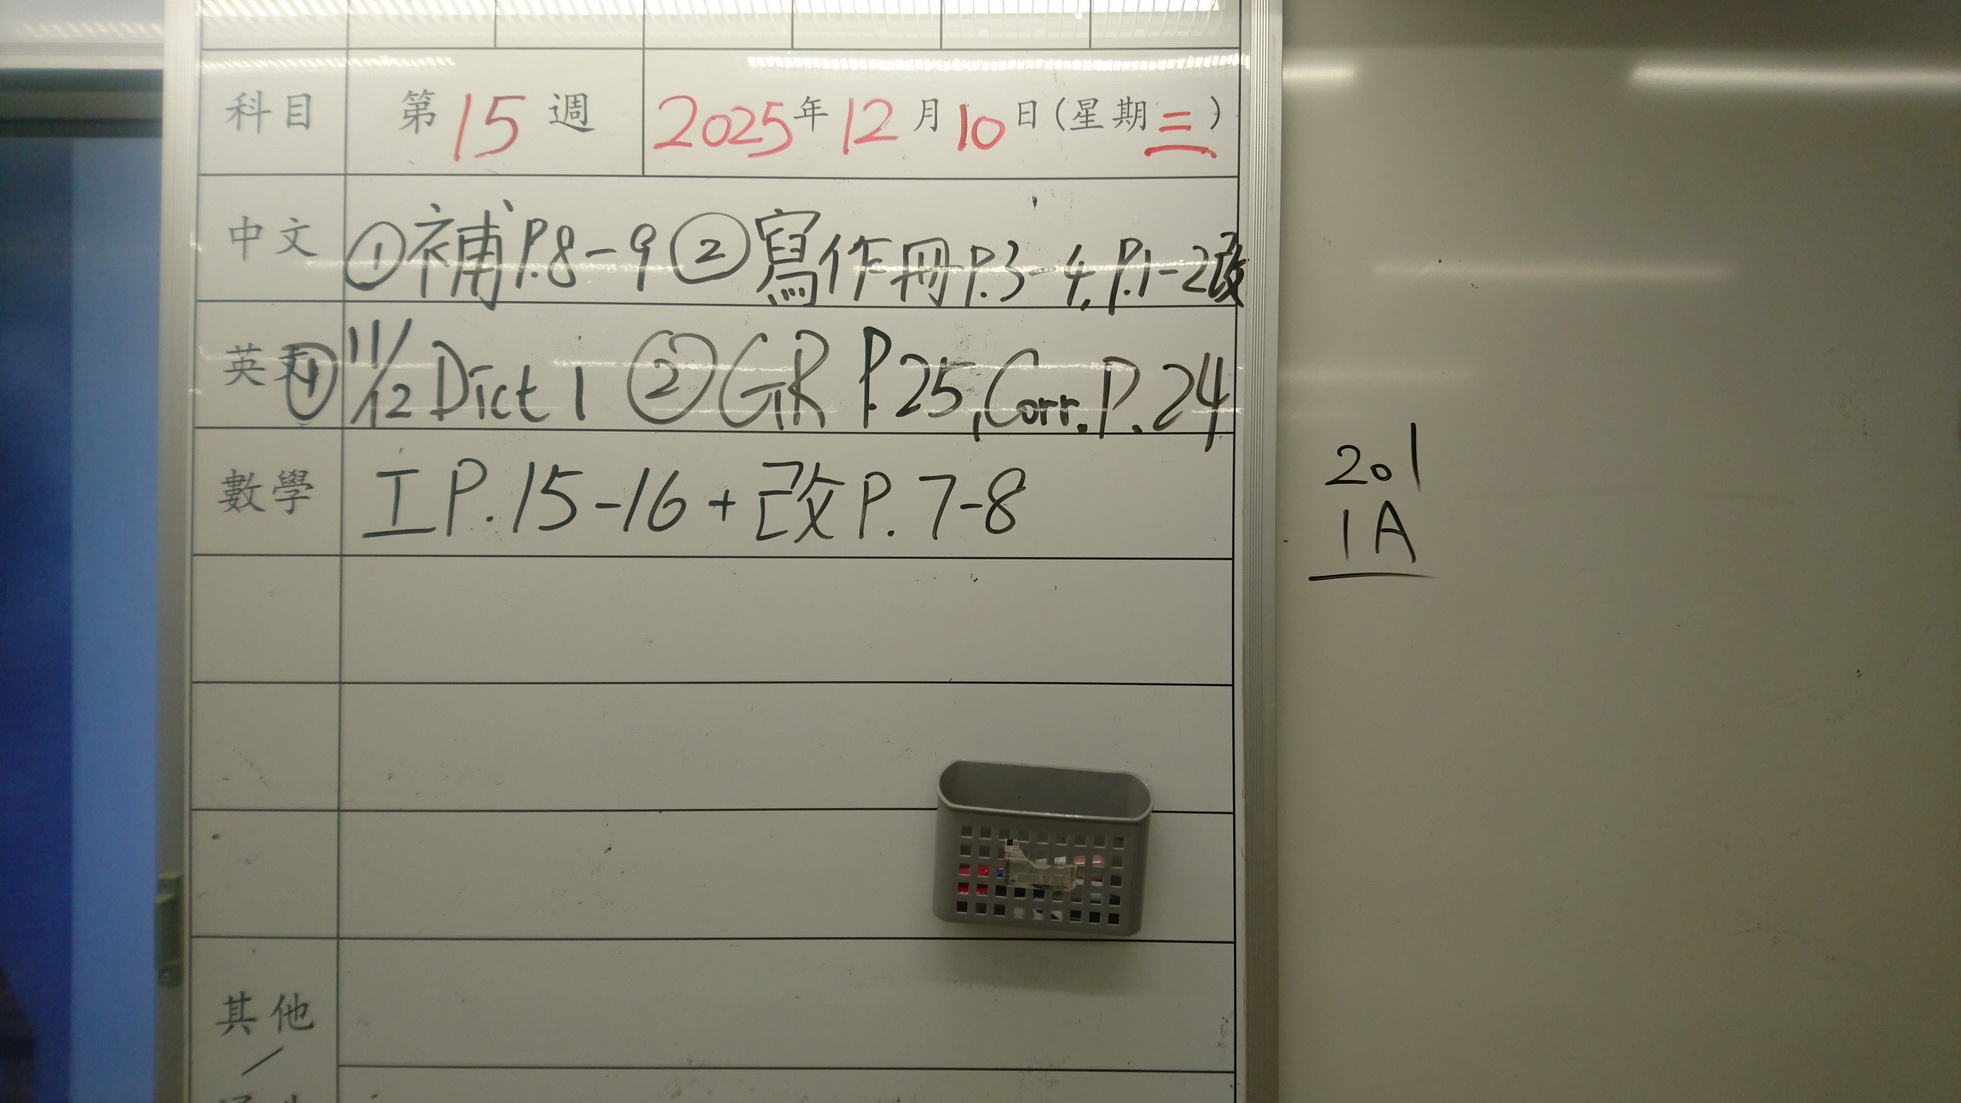 科目 第15週 2025年12月10日(星期三)
中文 ①補P.8-9 ②寫作冊P.3-4, P.1-2改
英文 ①11/12 Dict 1 ②GR P.25, Corr. P.24
數學 工P.15-16+改P.7-8
其他
/
201
1A